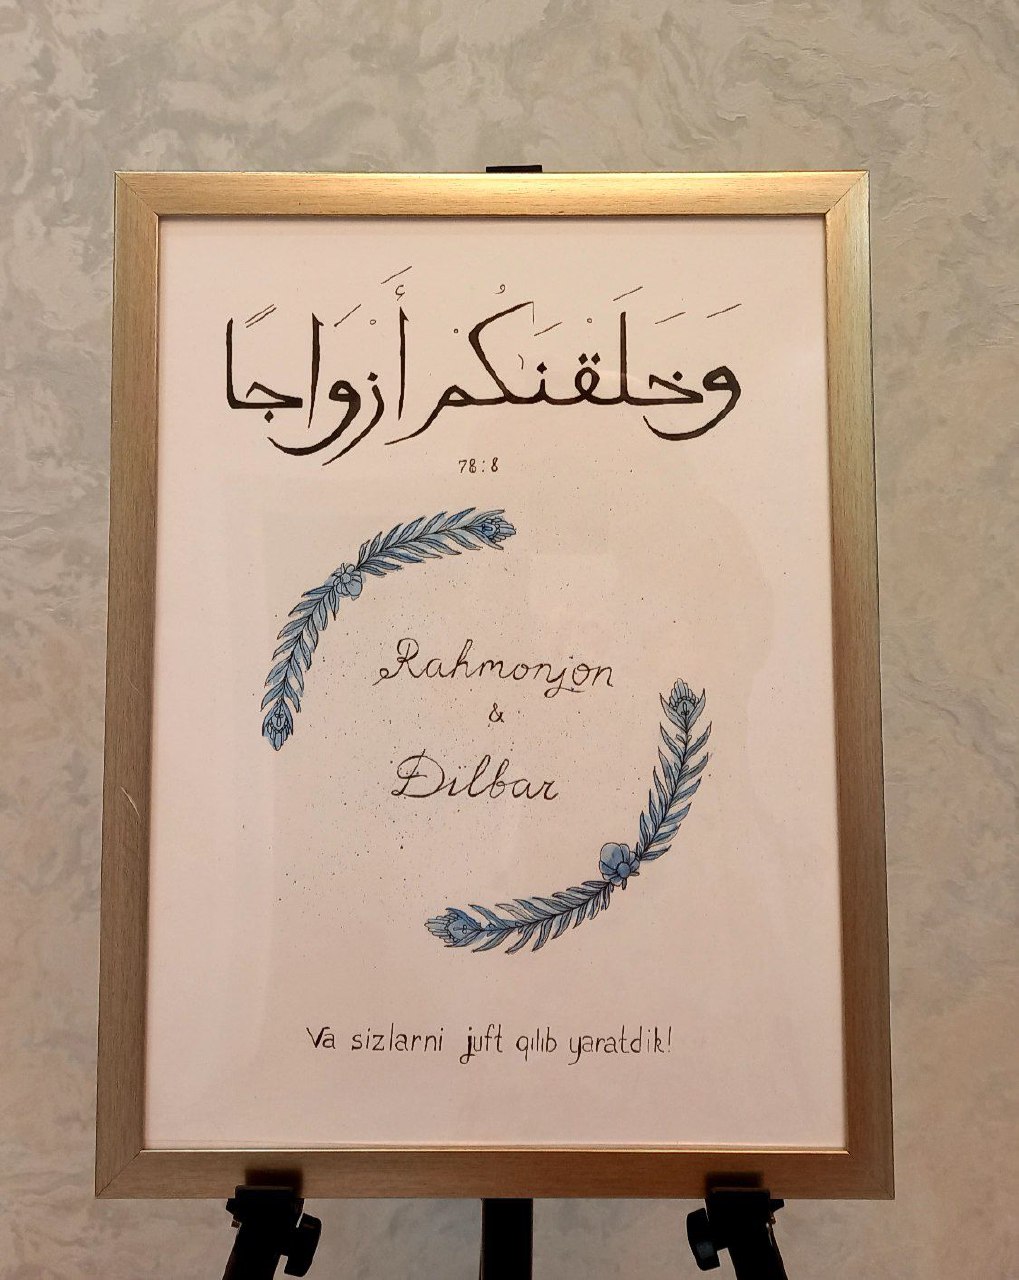 وَخَلَقْنَٰكُمْ أَزْوَاجًا
78:8
Rahmonjon
&
Dilbar
Va sizlarni juft qılıb yaratdik!